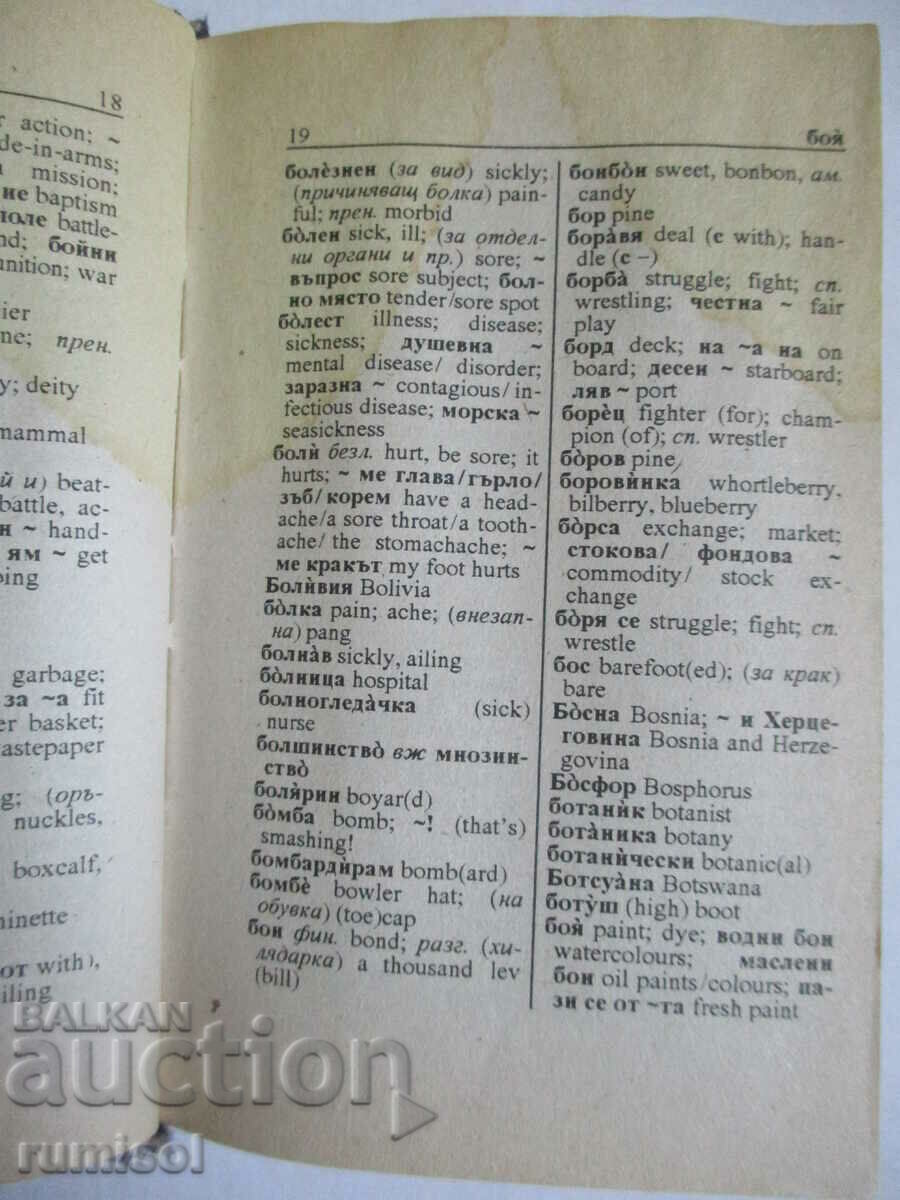 18
action; ~
de-in-arms;
mission;
ние baptism
поле battle-
nd; бойни
unition; war
ier
ne; прен.
y; deity
mammal
й и) beat-
battle, ac-
н ~ hand-
ям ~ get
ping
garbage;
за ~а fit
er basket;
astepaper
g; (оръ-
nuckles,
boxcalf,
ninette
от with),
iling
19
боя̀
болѐзнен (за вид) sickly;
(причиняващ болка) pain-
ful; прен. morbid
бо̀лен sick, ill; (за отдел-
ни органи и пр.) sore; ~
въпрос sore subject; бол-
но място tender/sore spot
бо̀лест illness; disease;
sickness; душевна ~
mental disease/ disorder;
заразна ~ contagious/ in-
fectious disease; морска ~
seasickness
болѝ безл. hurt, be sore; it
hurts; ~ ме глава/гърло/
зъб/корем have a head-
ache/a sore throat/a tooth-
ache/ the stomachache; ~
ме кракът my foot hurts
Болѝвия Bolivia
бо̀лка pain; ache; (внезап-
на) pang
болна̀в sickly, ailing
бо̀лница hospital
болногледа̀чка (sick)
nurse
болшинство̀ вж мнозин-
ство̀
боля̀рин boyar(d)
бо̀мба bomb; ~! (that's)
smashing!
бомбардѝрам bomb(ard)
бомбѐ bowler hat; (на
обувка) (toe)cap
бон фин. bond; разг. (хи-
лядарка) a thousand lev
(bill)
бонбо̀н sweet, bonbon, ам.
candy
бор pine
бора̀вя deal (с with); han-
dle (с –)
борба̀ struggle; fight; сп.
wrestling; честна ~ fair
play
борд deck; на ~а на on
board; десен ~ starboard;
ляв ~ port
борѐц fighter (for); cham-
pion (of); сп. wrestler
бо̀ров pine
боровѝнка whortleberry,
bilberry, blueberry
бо̀рса exchange; market;
стокова/ фондова ~
commodity/ stock ex-
change
бо̀ря се struggle; fight; сп.
wrestle
бос barefoot(ed); (за крак)
bare
Бо̀сна Bosnia; ~ и Херце-
говина Bosnia and Herze-
govina
Бо̀сфор Bosphorus
ботанѝк botanist
бота̀ника botany
ботанѝчески botanic(al)
Ботсуа̀на Botswana
боту̀ш (high) boot
боя̀ paint; dye; водни бои
watercolours; маслени
бои oil paints/colours; па-
зи се от ~та fresh paint
BALKAN
auction
rumisol